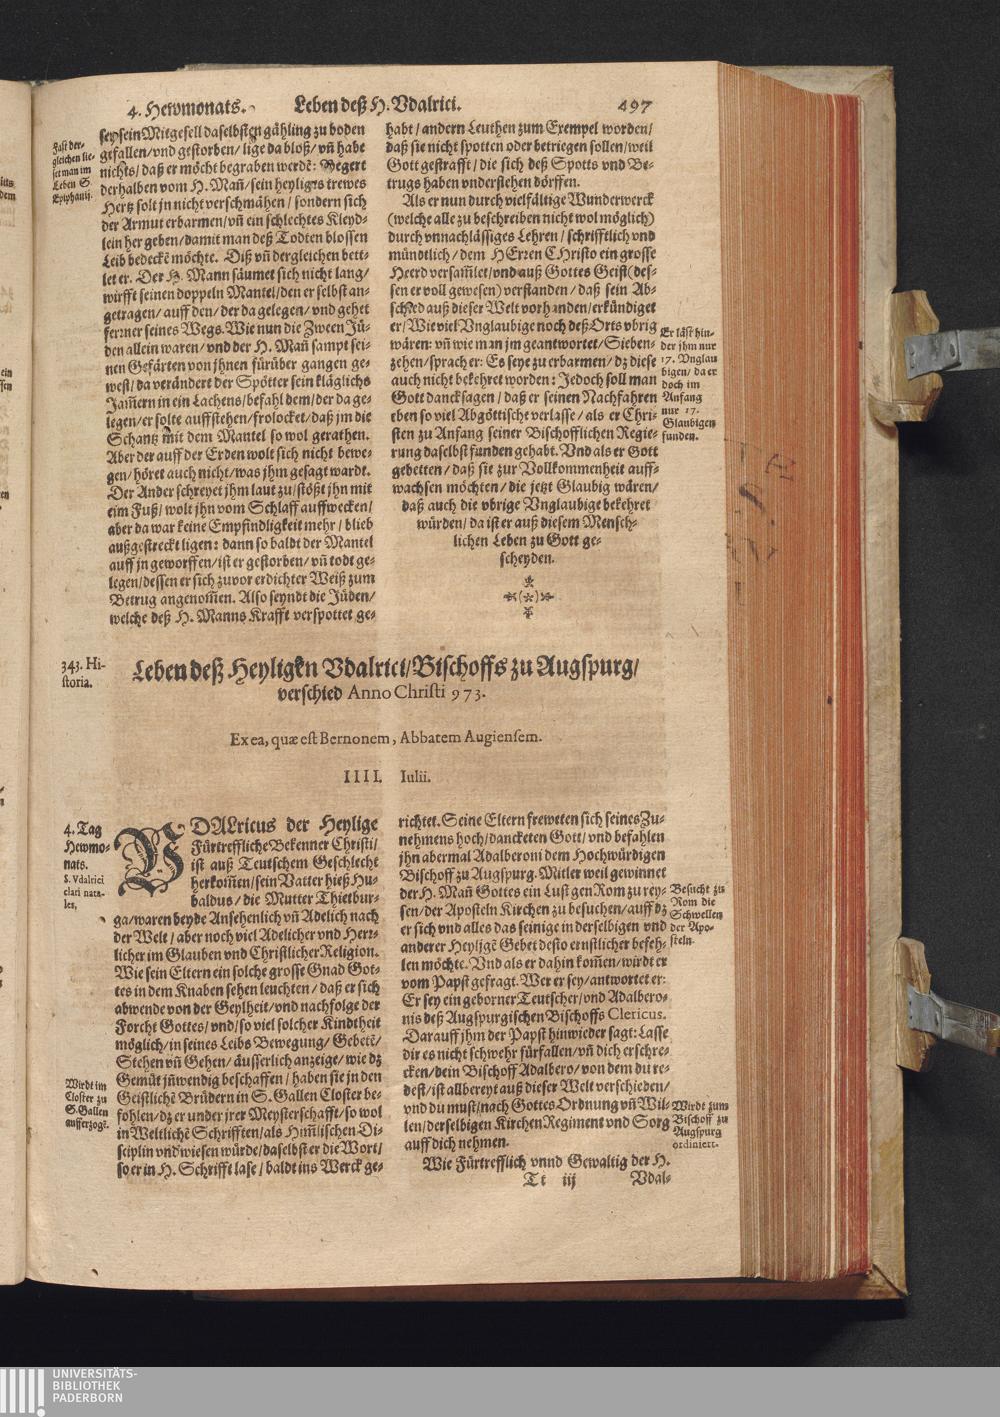 4. Hewmonats. Leben deß H. Vdalrici. 497
Fast der-
gleichen lie-
set man im
Leben S.
Epiphanij.
sey sein Mitgesell daselbsten gähling zu boden
gefallen/vnd gestorben/ lige da bloß/ vñ habe
nichts/ daß er möcht begraben werdẽ: Begert
derhalben vom H. Mañ/ sein heyliges trewes
Hertz solt jn nicht verschmähen/ sondern sich
der Armut erbarmen/ vñ ein schlechtes Kleyd-
lein her geben/damit man deß Todten blossen
Leib bedeckẽ möchte. Diß vñ dergleichen bett-
let er. Der H. Mann säumet sich nicht lang/
wirfft seinen doppeln Mantel/den er selbst an-
getragen/ auff den/ der da gelegen/ vnd gehet
ferrner seines Wegs. Wie nun die Zween Jü-
den allein waren/ vnd der H. Mañ sampt sei-
nen Gefärten von jhnen fürüber gangen ge-
west/ da verändert der Spötter sein kläglichs
Jam̃ern in ein Lachens/befahl dem/der da ge-
legen/er solte auffstehen/frolocket/ daß jm die
Schantz mit dem Mantel so wol gerathen.
Aber der auff der Erden wolt sich nicht bewe-
gen/ höret auch nicht/was jhm gesagt wardt.
Der Ander schreyet jhm laut zu/stößt jhn mit
eim Fuß/ wolt jhn vom Schlaff auffwecken/
aber da war keine Empfindligkeit mehr/ blieb
außgestreckt ligen: dann so baldt der Mantel
auff jn geworffen/ist er gestorben/ vñ todt ge-
legen/dessen er sich zuvor erdichter Weiß zum
Betrug angenom̃en. Also seyndt die Jüden/
welche deß H. Manns Krafft verspottet ge-
habt/ andern Leuthen zum Exempel worden/
daß sie nicht spotten oder betriegen sollen/weil
Gott gestrafft/ die sich deß Spotts vnd Be-
trugs haben vnderstehen dörffen.
Als er nun durch vielfältige Wunderwerck
(welche alle zu beschreiben nicht wol möglich)
durch vnnachlässiges Lehren/ schrifftlich vnd
mündtlich/ dem HErren CHristo ein grosse
Heerd versam̃let/vnd auß Gottes Geist (des-
sen er voll gewesen) verstanden/ daß sein Ab-
schied auß dieser Welt vorhanden/erkündiget
er/Wie viel Vnglaubige noch deß Orts vbrig
wären: vñ wie man jm geantwortet/Sieben-
zehen/sprach er: Es seye zu erbarmen/ dz diese
auch nicht bekehret worden: Jedoch soll man
Gott danck sagen/ daß er seinen Nachfahren
eben so viel Abgöttische verlasse/ als er Chri-
sten zu Anfang seiner Bischofflichen Regie-
rung daselbst funden gehabt. Vnd als er Gott
gebetten/ daß sie zur Vollkommenheit auff-
wachsen möchten/ die jetzt Glaubig wären/
daß auch die vbrige Vnglaubige bekehret
würden/ da ist er auß diesem Mensch-
lichen Leben zu Gott ge-
scheyden.
(*)
Er läst hin-
der jhm nur
17. Vnglau
bigen/ da er
doch im
Anfang
nur 17.
Glaubigen
funden.
343. Hi-
storia.
Leben deß Heyligen Vdalrici/Bischoffs zu Augspurg/
verschied Anno Christi 973.
Ex ea, quæ est Bernonem, Abbatem Augiensem.
IIII. Iulii.
4. Tag
Hewmo-
nats.
S. Vdalrici
clari nata-
les,
VDALricus der Heylige
Fürtreffliche Bekenner Christi/
ist auß Teutschem Geschlecht
herkom̃en/sein Vatter hieß Hu-
baldus/ die Mutter Thietbur-
ga/waren beyde Ansehenlich vñ Adelich nach
der Welt/ aber noch viel Adelicher vnd Herr-
licher im Glauben vnd Christlicher Religion.
Wie sein Eltern ein solche grosse Gnad Got-
tes in dem Knaben sehen leuchten/ daß er sich
abwende von der Geylheit/vnd nachfolge der
Forcht Gottes/ vnd/so viel solcher Kindtheit
möglich/in seines Leibs Bewegung/ Gebetẽ/
Stehen vñ Gehen/ äusserlich anzeige/ wie dz
Gemüt jñwendig beschaffen/ haben sie jn den
Geistlichẽ Brüdern in S. Gallen Closter be-
fohlen/ dz er under jrer Meysterschafft/ so wol
in Weltlichẽ Schrifften/als Him̃lischen Di-
sciplin vndwiesen würde/daselbst er die Wort/
so er in H. Schrifft lase/ baldt ins Werck ge-
Wirdt im
Closter zu
S. Gallen
aufferzogẽ.
richtet. Seine Eltern freweten sich seines Zu-
nehmens hoch/danckten Gott/ vnd befahlen
jhn abermal Adalberoni dem Hochwürdigen
Bischoff zu Augspurg. Mitler weil gewinnet
der H. Mañ Gottes ein Lust gen Rom zu rey-
sen/der Aposteln Kirchen zu besuchen/auff dz
er sich vnd alles das seinige in derselbigen vnd
anderer Heyligẽ Gebet desto ernstlicher befeh-
len möchte. Vnd als er dahin kom̃en/wirdt er
vom Papst gefragt. Wer er sey/antwortet er:
Er sey ein geborner Teutscher/vnd Adalbero-
nis deß Augspurgischen Bischoffs Clericus.
Darauff jhm der Papst hinwieder sagt: Lasse
dir es nicht schwehr fürfallen/vñ dich erschre-
cken/dein Bischoff Adalbero/ von dem du re-
dest/ist allbereyt auß dieser Welt verschieden/
vnd du must/nach Gottes Ordnung vñ Wil-
len/derselbigen Kirchen Regiment vnd Sorg
auff dich nehmen.
Wie Fürtrefflich vnnd Gewaltig der H.
Besucht zu
Rom die
Schwellen
der Apo-
steln.
Wirdt zum
Bischoff zu
Augspurg
ordiniert.
Tt iij Vdal-
UNIVERSITÄTS-
BIBLIOTHEK
PADERBORN